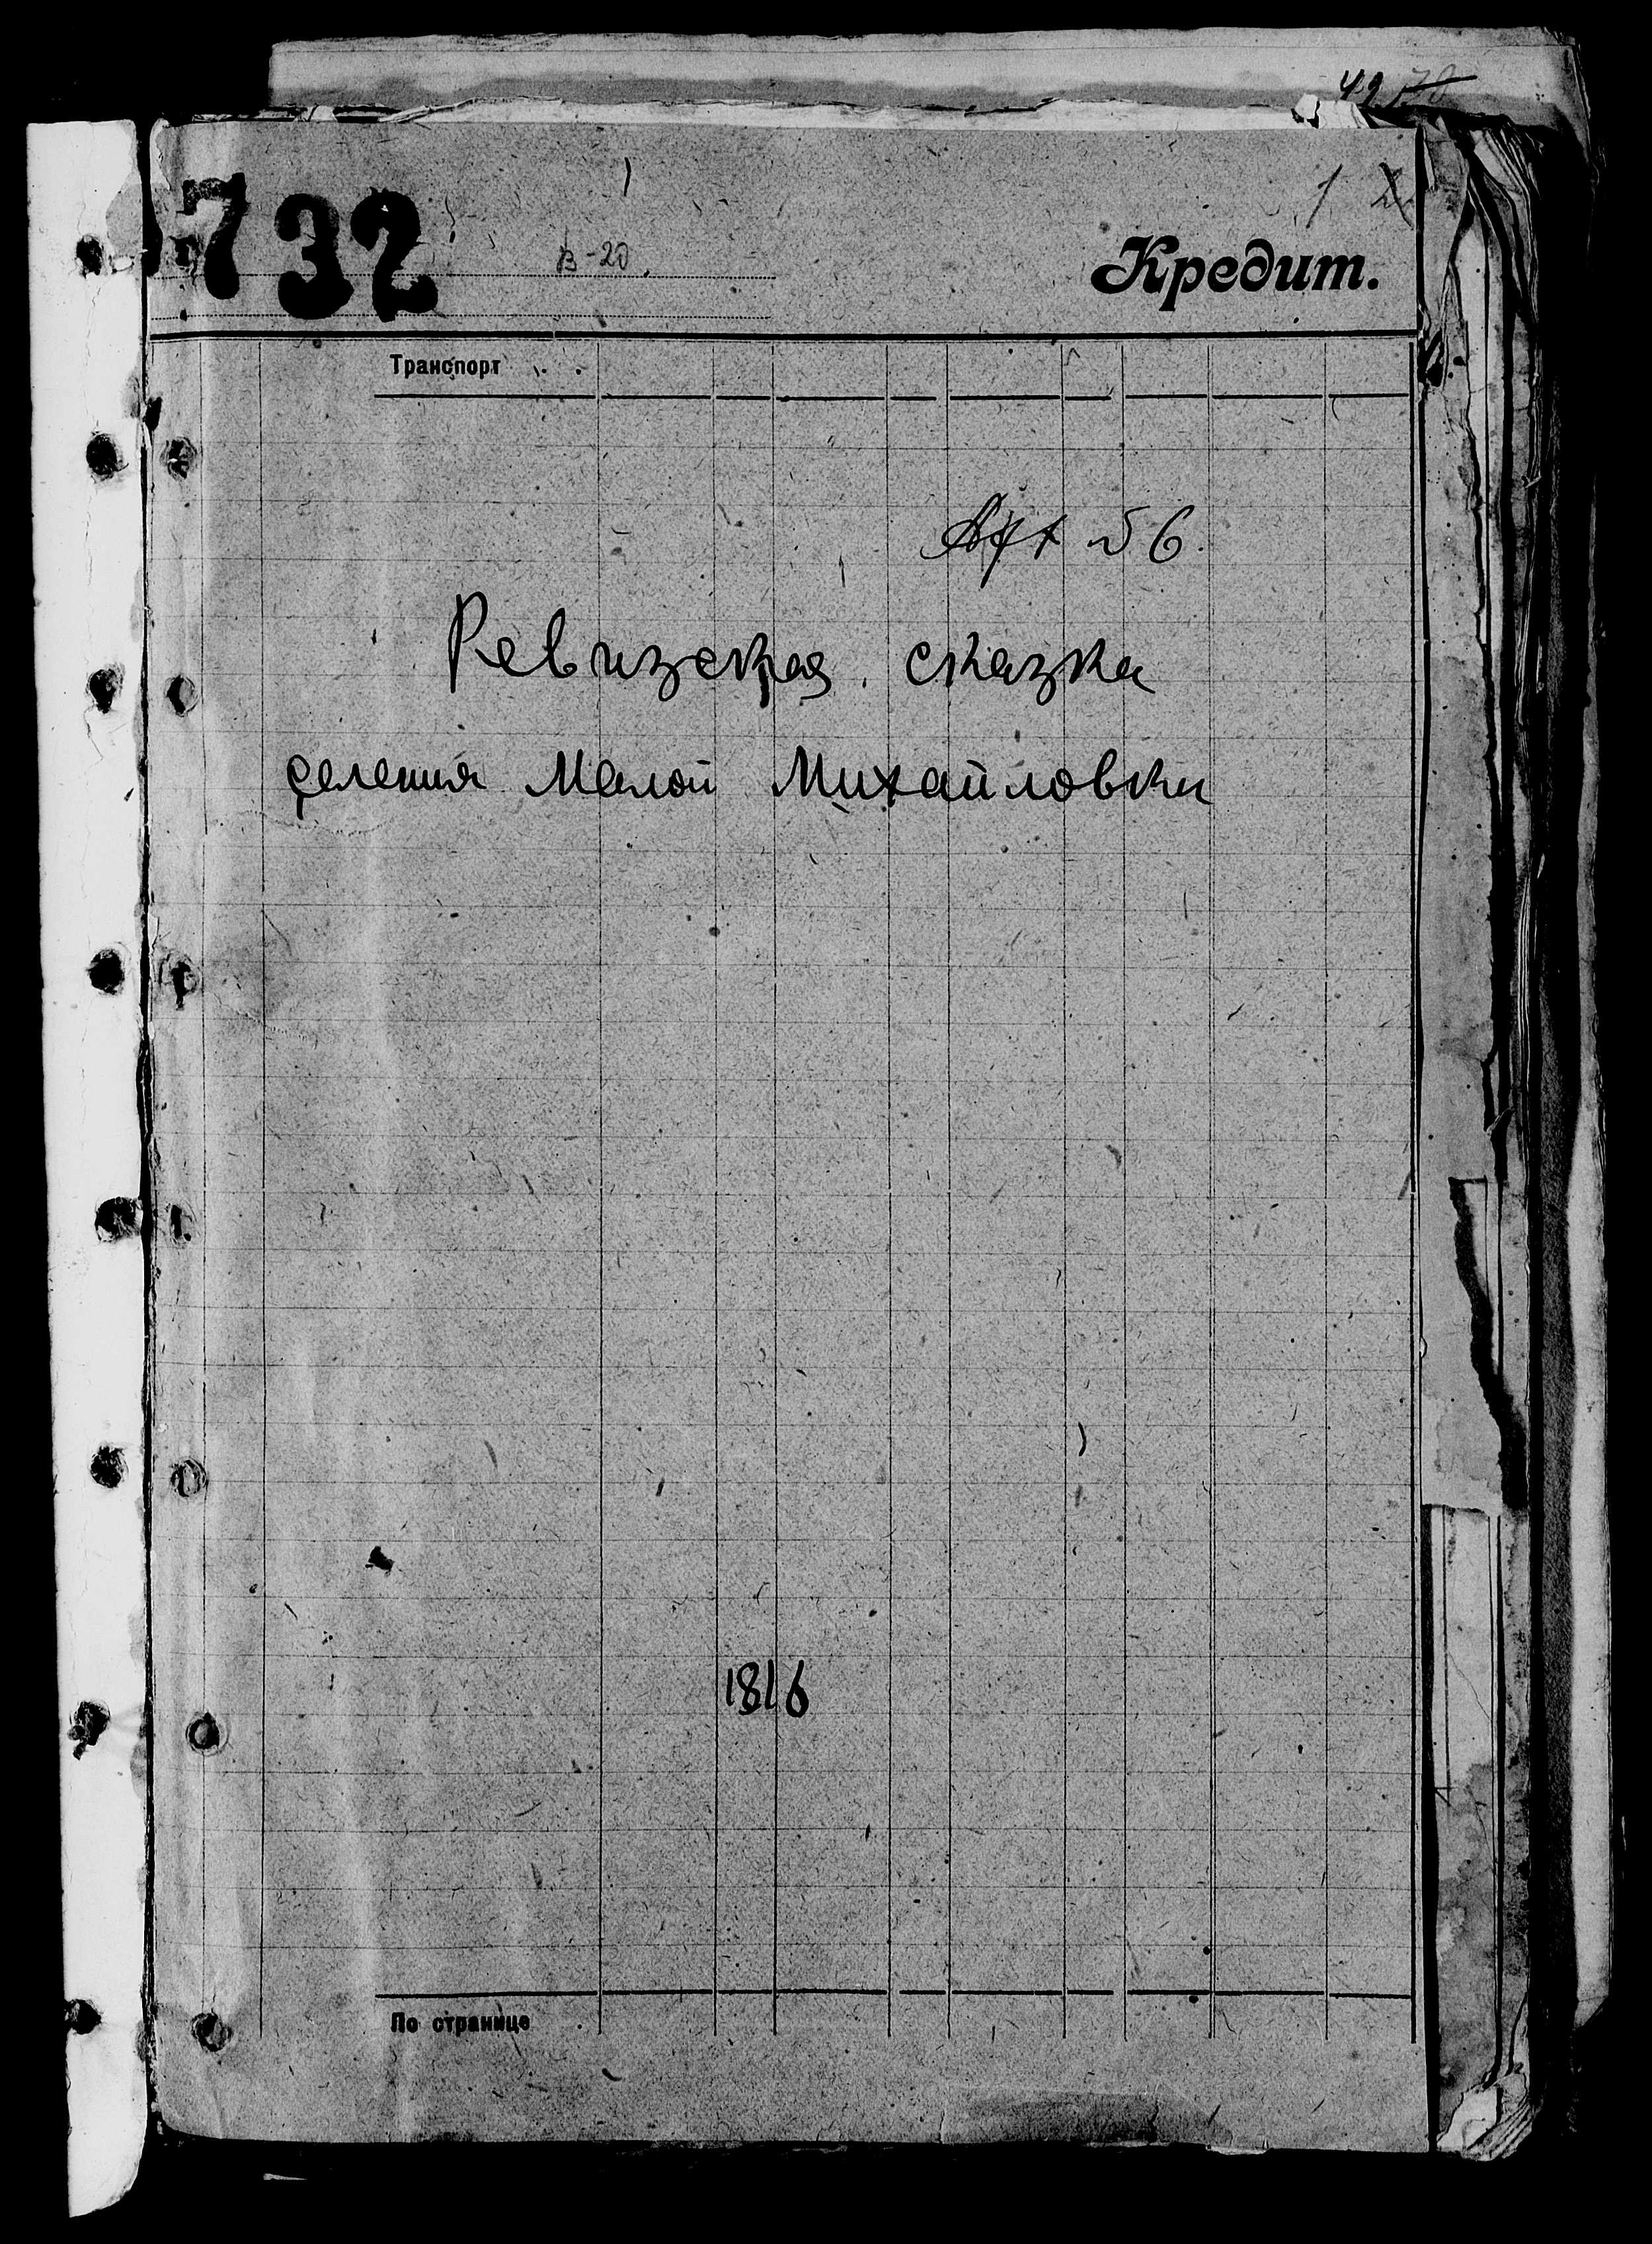 49 70
1 2
732
В-20.
Кредит.
Транспорт . .
№ 6.
Ревизская сказка
деления Малой Михайловки
1816
По странице .